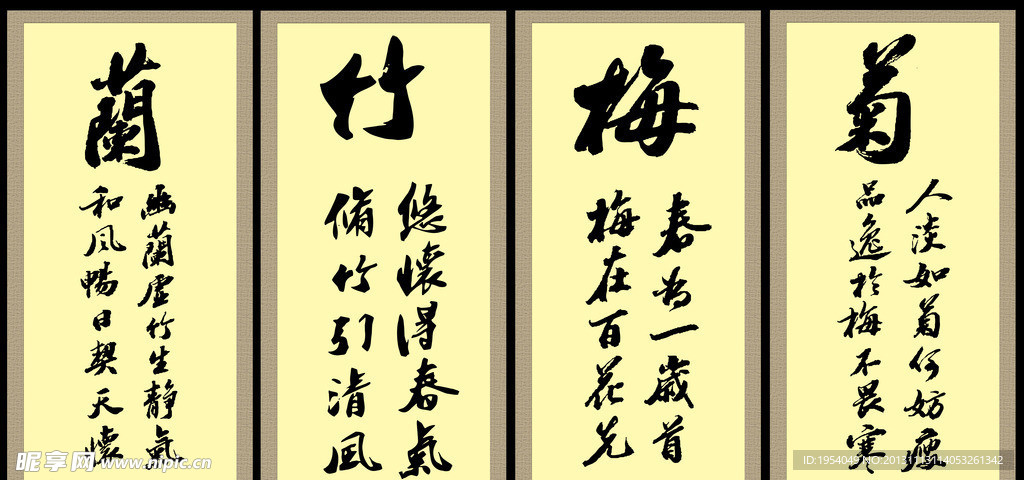 蘭
幽蘭虛竹生靜氣
和風暢日契天懷
竹
悠懷得春氣
脩竹引清風
梅
春為一歲首
梅在百花先
菊
人淡如菊何妨瘦
品逸於梅不畏寒
昵享网 www.nipic.cn
ID:1954049 NO:20131113114053261342